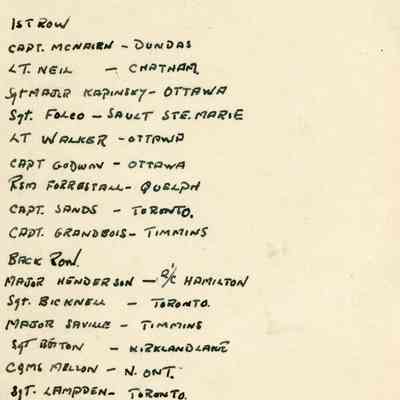 1ST ROW
CAPT. MCNAIRN - DUNDAS
LT. NEIL - CHATHAM
Sgt MAJOR KAPINSKY - OTTAWA
Sgt. FOLEO - SAULT STE. MARIE
LT WALKER - OTTAWA
CAPT GODWIN - OTTAWA
RSM FORRESTALL - GUELPH
CAPT. SANDS - TORONTO.
CAPT. GRANDBOIS - TIMMINS
BACK ROW.
MAJOR HENDERSON - A/C HAMILTON
Sgt. BICKNELL - TORONTO.
MAJOR SAVILLE - TIMMINS
Sgt - KIRKLAND LAKE
CQMS MELLON - N. ONT.
SgT. LAMPDEN - TORONTO.